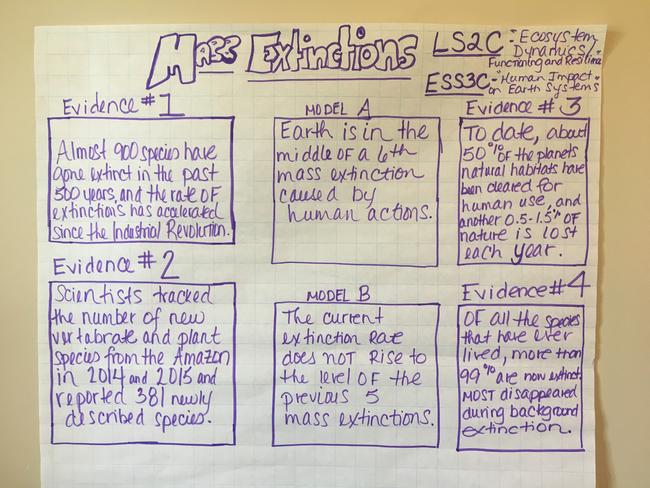 Mass Extinctions
LS2C - "Ecosystem
Dynamics,
Functioning and Resilience
ESS3C - "Human Impact
on Earth Systems"
Evidence #1
Almost 900 species have
gone extinct in the past
500 years, and the rate of
extinctions has accelerated
since the Industrial Revolution.
MODEL A
Earth is in the
middle of a 6th
mass extinction
caused by
human actions.
Evidence # 3
To date, about
50% of the planets
natural habitats have
been cleared for
human use, and
another 0.5-1.5% of
nature is lost
each year.
Evidence #2
Scientists tracked
the number of new
vertabrate and plant
species from the Amazon
in 2014 and 2015 and
reported 381 newly
described species.
MODEL B
The current
extinction rate
does not rise to
the level of the
previous 5
mass extinctions.
Evidence #4
Of all the species
that have ever
lived, more than
99% are now extinct.
Most disappeared
during background
extinction.